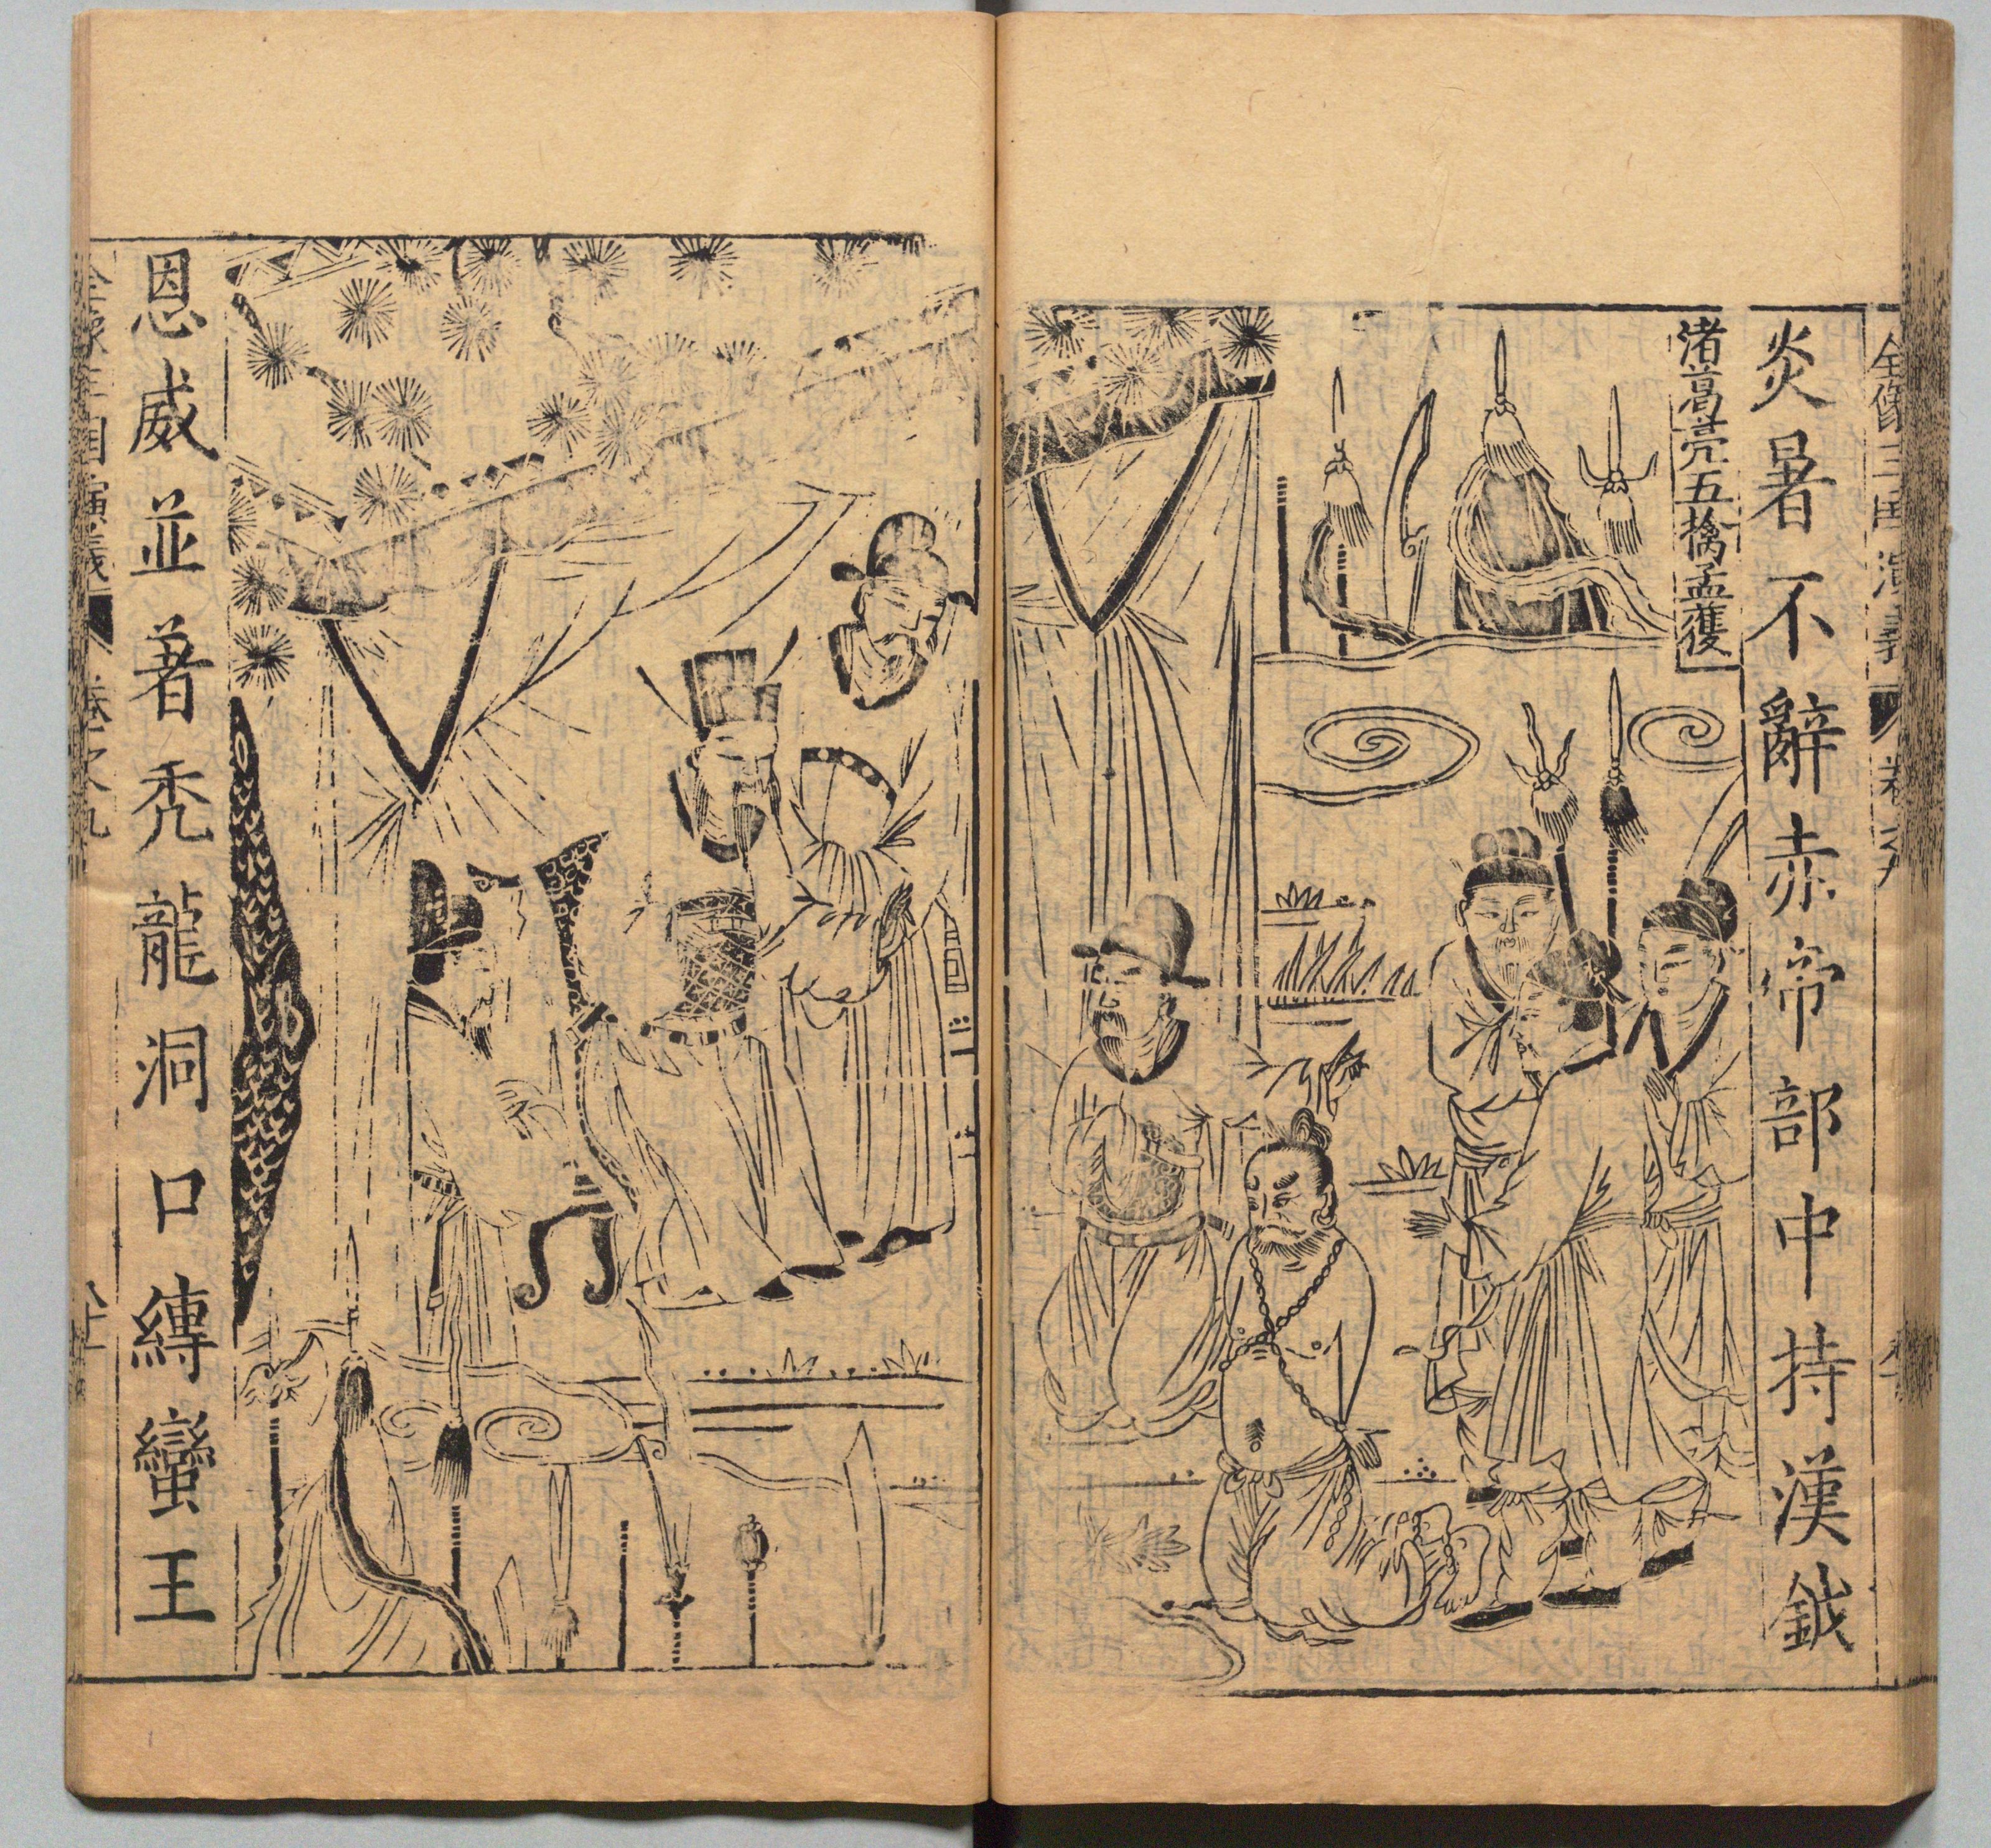 全像三国演義 卷之九
炎暑不辭赤帝部中持漢鉞
渚高亮五擒孟獲
恩威並著禿龍洞口縛蠻王
全像三國演義 卷之九